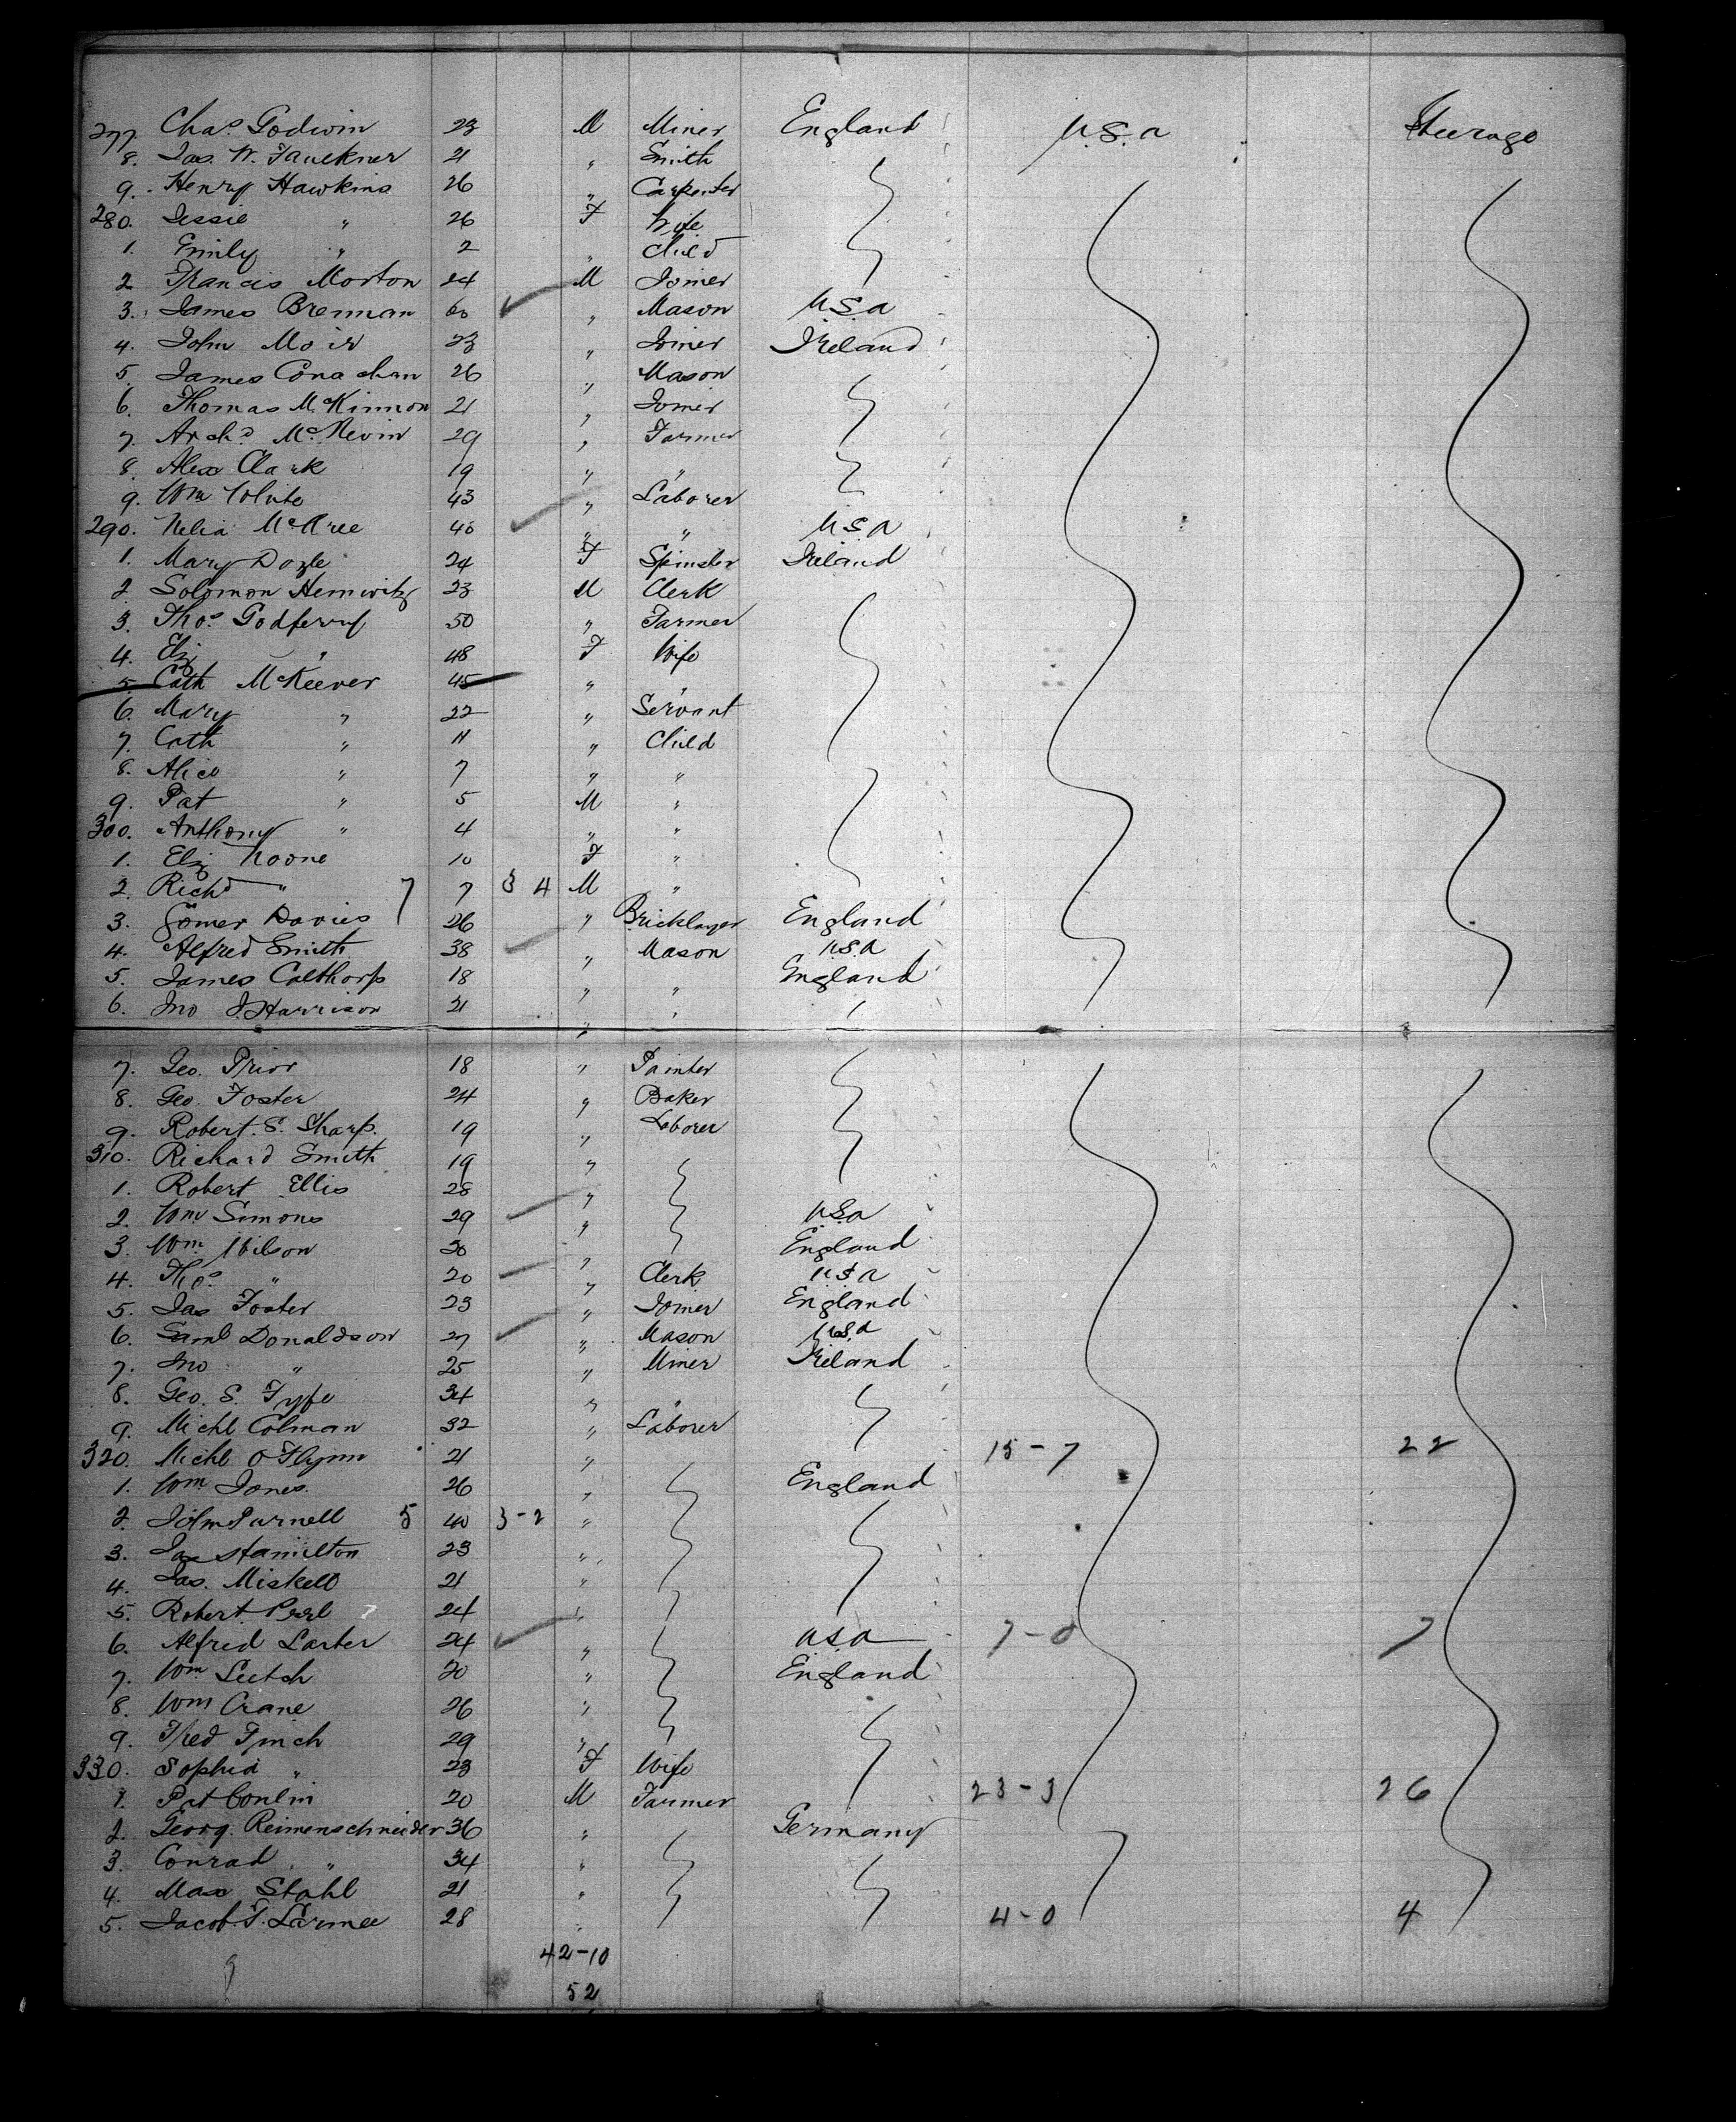 277. Chas. Godwin 23 M Miner England U.S.A Steerage
8. Jas. W. Faulkner 21 " Smith
9. Henry Hawkins 26 " Carpenter
280. Jessie " 26 F Wife
1. Emily " 2 " Child
2 Francis Morton 24 M Joiner
3. James Brennan 60 " Mason U.S.A
4. John Moir 23 " Joiner Ireland
5. James Conachan 26 " Mason
6. Thomas McKinnon 21 " Joiner
7. Archd. McNevin 29 " Farmer
8. Alex Clark 19 " "
9. Wm White 43 " Laborer
290. McAree 40 " " U.S.A
1. Mary Doyle 24 F Spinster Ireland
2. Solomon 23 M Clerk
3. Thos. Godferry 50 " Farmer
4. Eliz " 48 F Wife
5. Cath McKeever 45 " "
6. Mary " 22 " Servant
7. Cath " 11 " Child
8. Alice " 7 " "
9. Pat " 5 M "
300. Anthony " 4 " "
1. Eliz Noone 10 F "
2. Richd " 7 7 3 4 M "
3. Gomer Davies 26 " Bricklayer England
4. Alfred Smith 38 " Mason U.S.A
5. James Calthorp 18 " " England
6. Jno J. Harrison 21 " "
7. Geo. Prior 18 " Painter
8. Geo. Foster 24 " Baker
9. Robert. S. Sharp. 19 " Laborer
310. Richard Smith 19 "
1. Robert Ellis 28 "
2. Wm Simons 29 " U.S.A
3. Wm. Wilson 30 " England
4. Thos. " 20 " Clerk U.S.A
5. Jas Foster 23 " Joiner England
6. Saml Donaldson 27 " Mason U.S.A
7. Jno " 25 " Miner Ireland
8. Geo. S. Fyfe 34 " "
9. Michl Colman 32 " Laborer
320. Michl O'Flynn 21 " 15-7 22
1. Wm Jones. 26 " England
2. John Purnell 5 40 3-2 "
3. Jas Hamilton 23 "
4. Jas. Miskell 21 "
5. Robert 24 "
6. Alfred Larter 24 " U.S.A 7-0 7
7. Wm 20 " England
8. Wm Crane 26 "
9. Fred Finch 29 "
330. Sophia " 23 F Wife
1. Pat Conlin 20 M Farmer 23-3 26
2. Georg. Reimenschneider 36 " Germany
3. Conrad " 34 "
4. Max Stahl 21 "
5. Jacob. F. 28 " 4-0 4
42-10
52